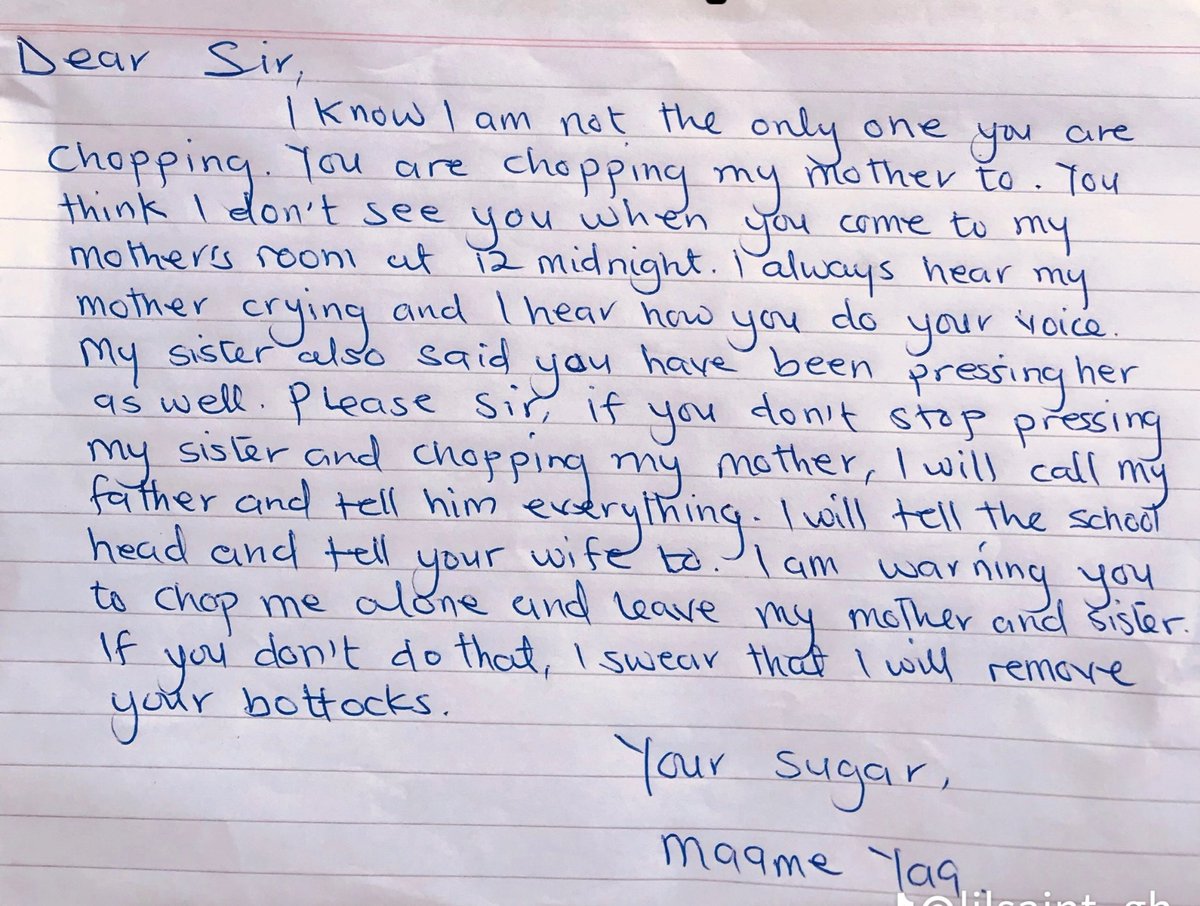 Dear Sir,
I know I am not the only one you are
chopping. You are chopping my mother to. You
think I don't see you when you come to my
mother's room at 12 midnight. I always hear my
mother crying and I hear how you do your voice.
My sister also said you have been pressing her
as well. Please Sir, if you don't stop pressing
my sister and chopping my mother, I will call my
father and tell him everything. I will tell the school
head and tell your wife to. I am warning you
to chop me alone and leave my mother and sister.
If you don't do that, I swear that I will remove
your bottocks.
Your sugar,
Maame Yaa.
@lilsaint_gh